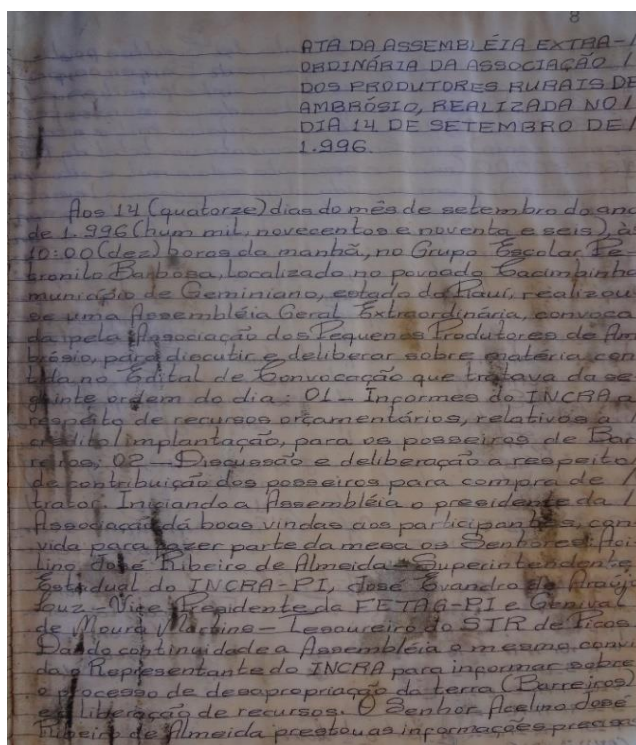 8
ATA DA ASSEMBLÉIA EXTRA-/
ORDINÁRIA DA ASSOCIAÇÃO /
DOS PRODUTORES RURAIS DE
AMBRÓSIO, REALIZADA NO /
DIA 14 DE SETEMBRO DE /
1.996.
Aos 14 (quatorze) dias do mês de setembro do ano
de 1.996 (hum mil, novecentos e noventa e seis), às
10:00 (dez) horas da manhã, no Grupo Escolar Pe-
tronilo Barbosa, Localizado no povoado Cacimbinha
município de Geminiano, estado do Piauí, realizou-
se uma Assembléia Geral Extraordinária, convoca
da pela Associação dos Pequenos Produtores de Am
brósio, para discutir e deliberar sobre matéria con
tida no Edital de Convocação que tratava da se
guinte ordem do dia: 01 - Informes do INCRA a
respeito de recursos orçamentários, relativos a /
crédito/implantação, para os posseiros de Bar
reiros; 02 - Discussão e deliberação a respeito/
de contribuição dos posseiros para compra de /
trator. Iniciando a Assembléia o presidente da /
Associação dá boas vindas aos participantes, con
vida para fazer parte da mesa os Senhores:
lino José Ribeiro de Almeida - Superintendente
Estadual do INCRA-PI, José Evandro de Araújo
Luz - Vice Presidente da FETAG-PI e Genival
de Moura Martins - Tesoureiro do STR de Picos.
Dando continuidade a Assembléia o mesmo convi
da o Representante do INCRA para informar sobre
o processo de desapropriação da terra (Barreiros)
e liberação de recursos. O Senhor Acelino José
Ribeiro de Almeida prestou as informações precisas